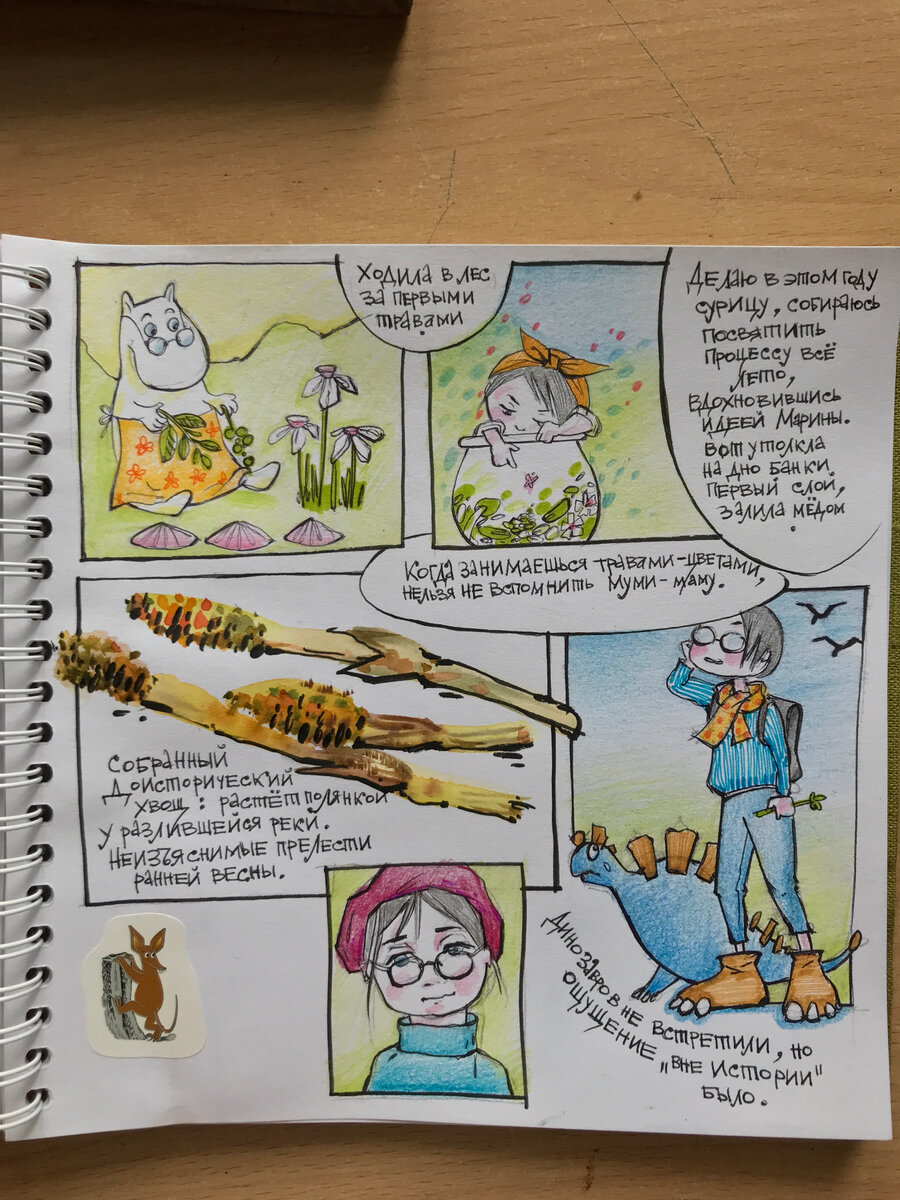 Ходила в лес
за первыми
травами
Делаю в этом году
сурицу, собираюсь
посвятить
процессу всё
лето,
вдохновившись
идеей Марины.
Вот утолкла
на дно банки
первый слой,
залила мёдом
.
Когда занимаешься травами-цветами,
нельзя не вспомнить Муми-маму.
Собранный
доисторический
хвощ: растёт полянкой
у разлившейся реки.
Неизъяснимые прелести
ранней весны.
Динозавров не встретили, но
ощущение „вне истории"
было.